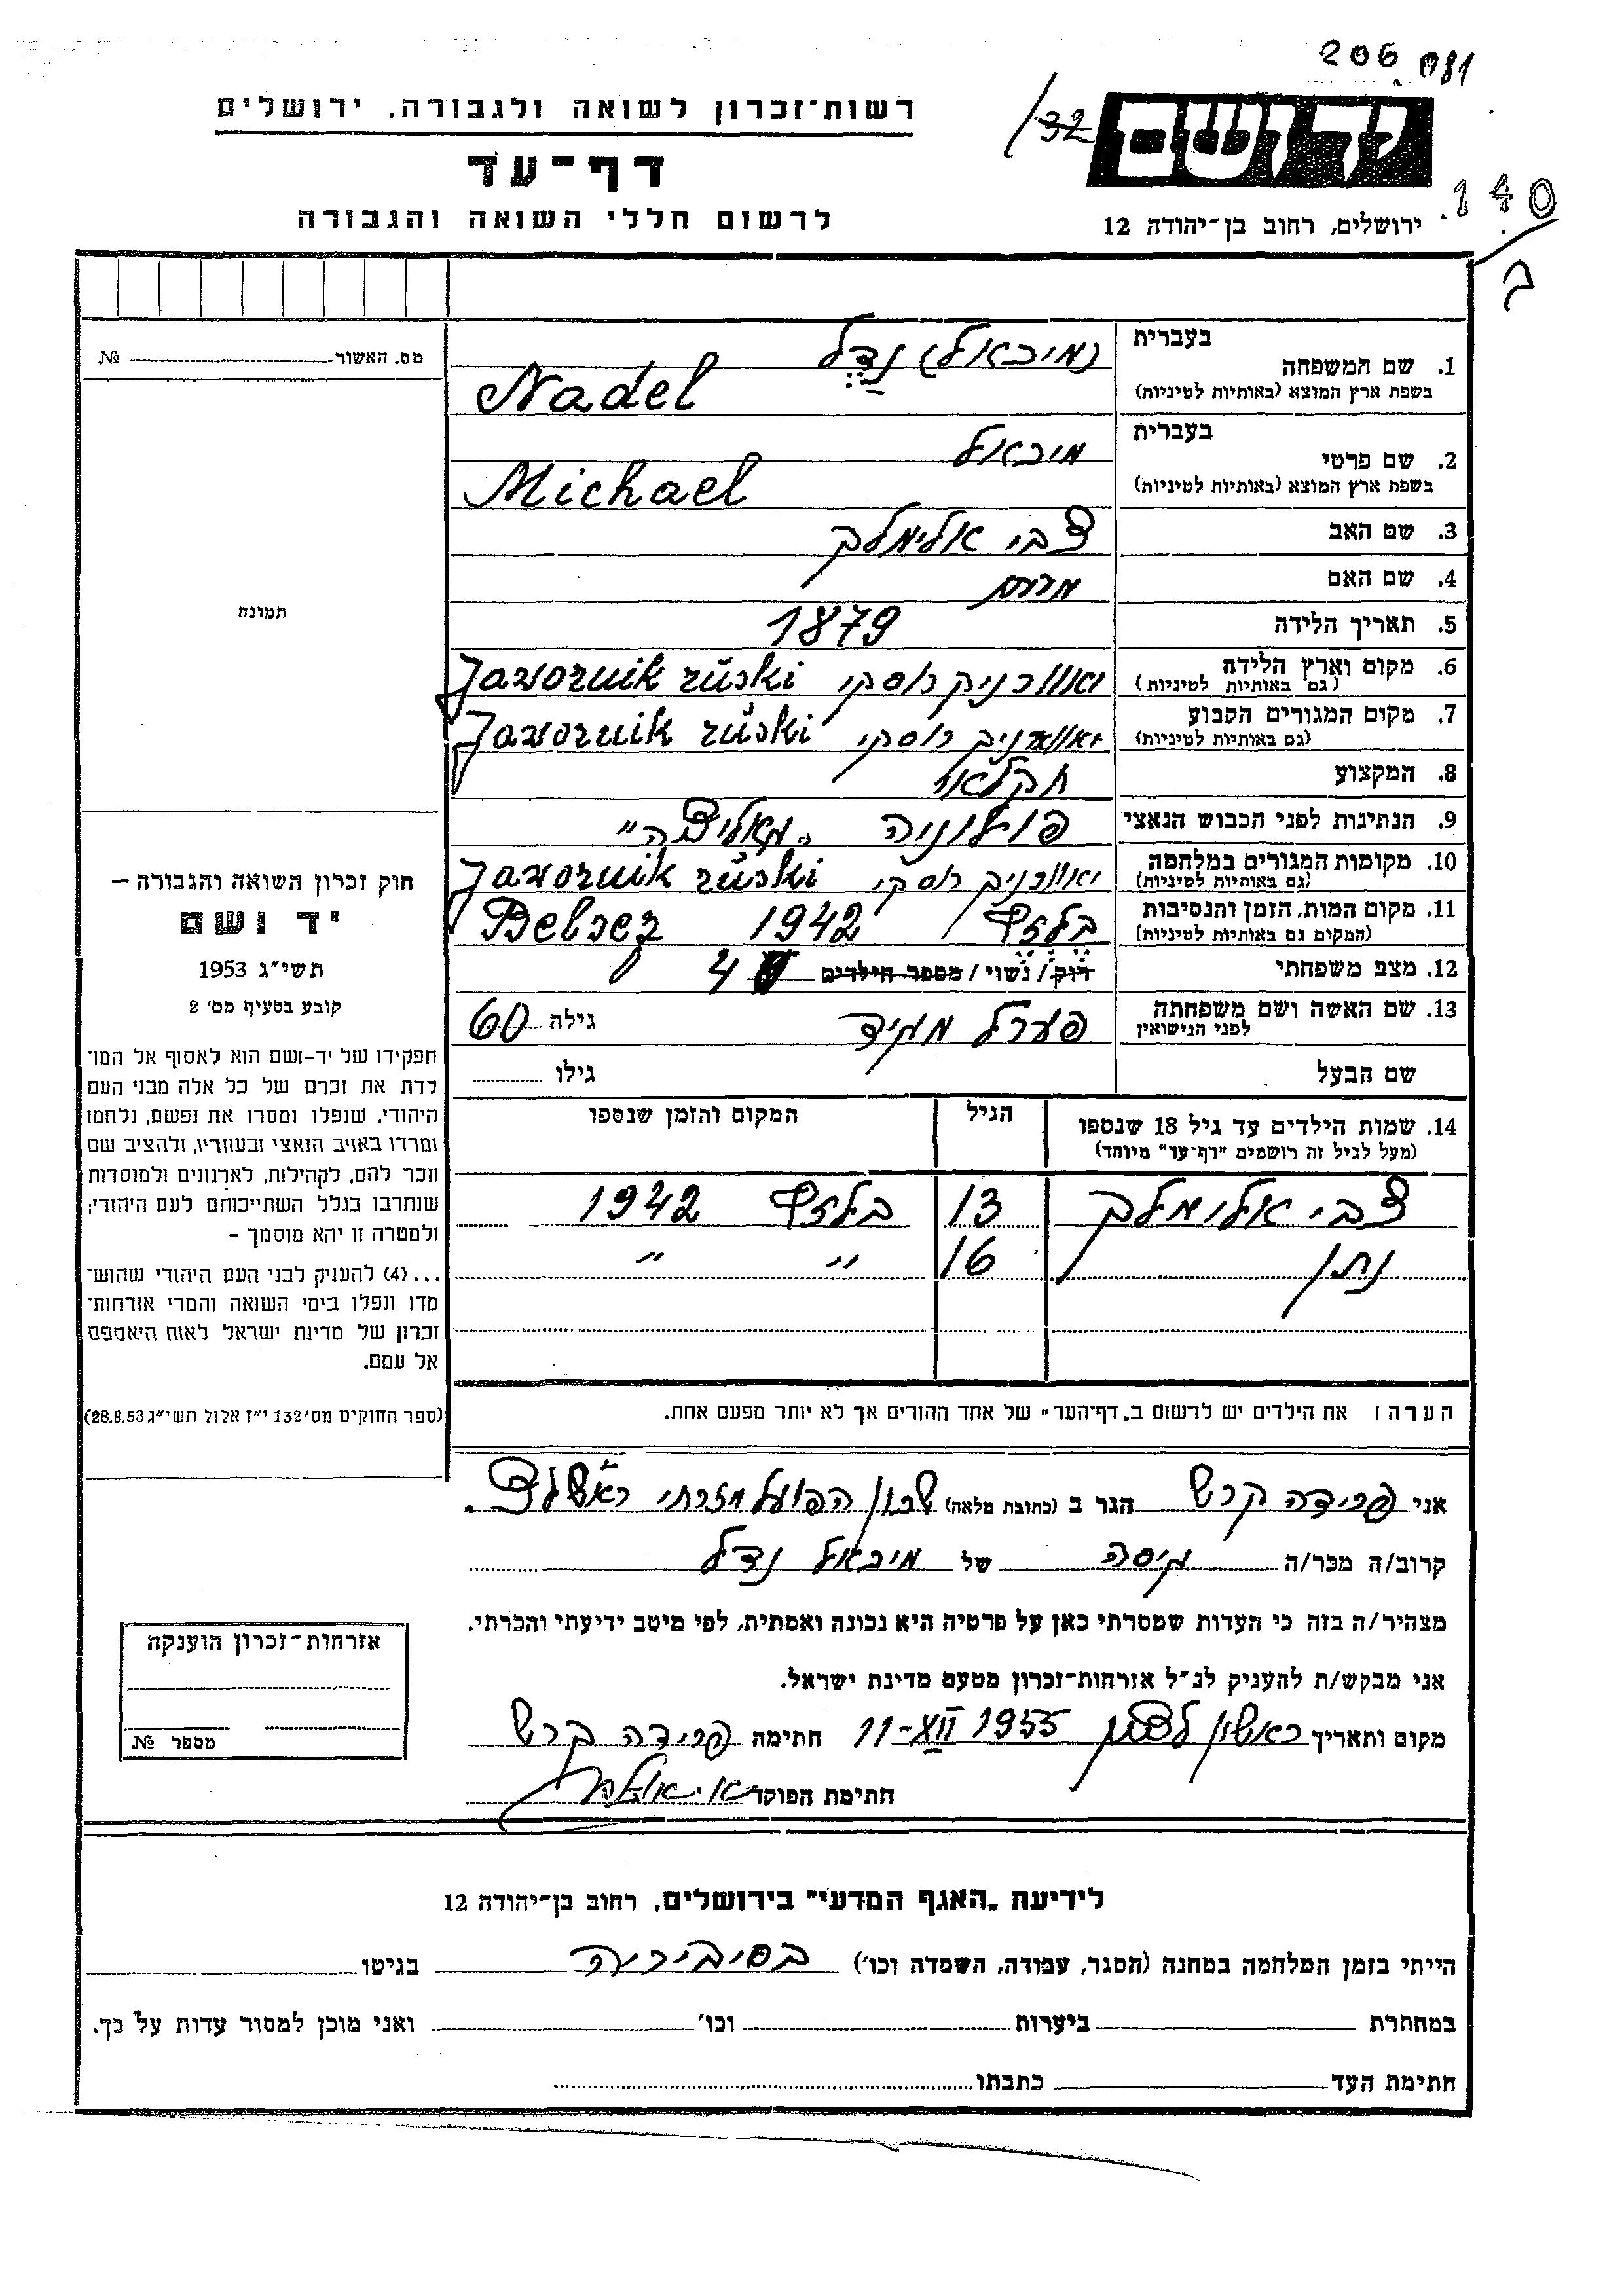 206 081
/32
רשות־זכרון לשואה ולגבורה, ירושלים
יד ושם
דף־עד
140
לרשום חללי השואה והגבורה
ירושלים, רחוב בן־יהודה 12
ב
מס. האשור № 
בעברית
(מיכאל) נדל
1. שם המשפחה
בשפת ארץ המוצא (באותיות לטיניות)
Nadel
בעברית
מיכאל
2. שם פרטי
בשפת ארץ המוצא (באותיות לטיניות)
Michael
3. שם האב צבי אלימלך
4. שם האם מרים
תמונה
5. תאריך הלידה 1879
6. מקום וארץ הלידה יאוורניק רוסקי Jawornik rúski
(גם באותיות לטיניות)
7. מקום המגורים הקבוע יאוורניק רוסקי Jawornik rúski
(גם באותיות לטיניות)
8. המקצוע חקלאי
9. הנתינות לפני הכבוש הנאצי פולוניה
10. מקומות המגורים במלחמה יאוורניק רוסקי Jawornik rúski
(גם באותיות לטיניות)
11. מקום המות, הזמן והנסיבות בלזץ 1942 Belzez
(המקום גם באותיות לטיניות)
12. מצב משפחתי רוק/ נשוי / מספר הילדים 4
13. שם האשה ושם משפחתה פערל מגיד גילה 60
לפני הנישואין
שם הבעל גילו
14. שמות הילדים עד גיל 18 שנספו הגיל המקום והזמן שנספו
(מעל לגיל זה רושמים "דף־עד" מיוחד)
צבי אלימלך 13 בלזץ 1942
נתן 16 " "
הערה: את הילדים יש לרשום ב„דף־העד" של אחד ההורים אך לא יותר מפעם אחת.
חוק זכרון השואה והגבורה –
יד ושם
תשי״ג 1953
קובע בסעיף מס׳ 2
תפקידו של יד־ושם הוא לאסוף אל המו־
לדת את זכרם של כל אלה מבני העם
היהודי, שנפלו ומסרו את נפשם, נלחמו
ומרדו באויב הנאצי ובעוזריו, ולהציב שם
וזכר להם, לקהילות, לארגונים ולמוסדות
שנחרבו בגלל השתייכותם לעם היהודי;
ולמטרה זו יהא מוסמך –
...(4) להעניק לבני העם היהודי שהוש־
מדו ונפלו בימי השואה והמרי אזרחות־
זכרון של מדינת ישראל לאות היאספם
אל עמם.
(ספר החוקים מס׳ 132 י״ז אלול תשי״ג 28.8.53)
אני פרידה קרש הגר ב (כתובת מלאה) שכון הפועל מזרחי ראשל״צ
קרוב/ה מכר/ה גיסה של מיכאל נדל
מצהיר/ה בזה כי העדות שמסרתי כאן על פרטיה היא נכונה ואמתית, לפי מיטב ידיעתי והכרתי.
אני מבקש/ת להעניק לנ״ל אזרחות־זכרון מטעם מדינת ישראל.
מקום ותאריך ראשון לציון 11-XII 1955 חתימה פרידה קרש
חתימת הפוקד
אזרחות־זכרון הוענקה
מספר №
לידיעת „האגף המדעי" בירושלים, רחוב בן־יהודה 12
הייתי בזמן המלחמה במחנה (הסגר, עבודה, השמדה וכו׳) בסיביריה בגיטו
במחתרת ביערות וכו׳ ואני מוכן למסור עדות על כך.
חתימת העד כתבתו